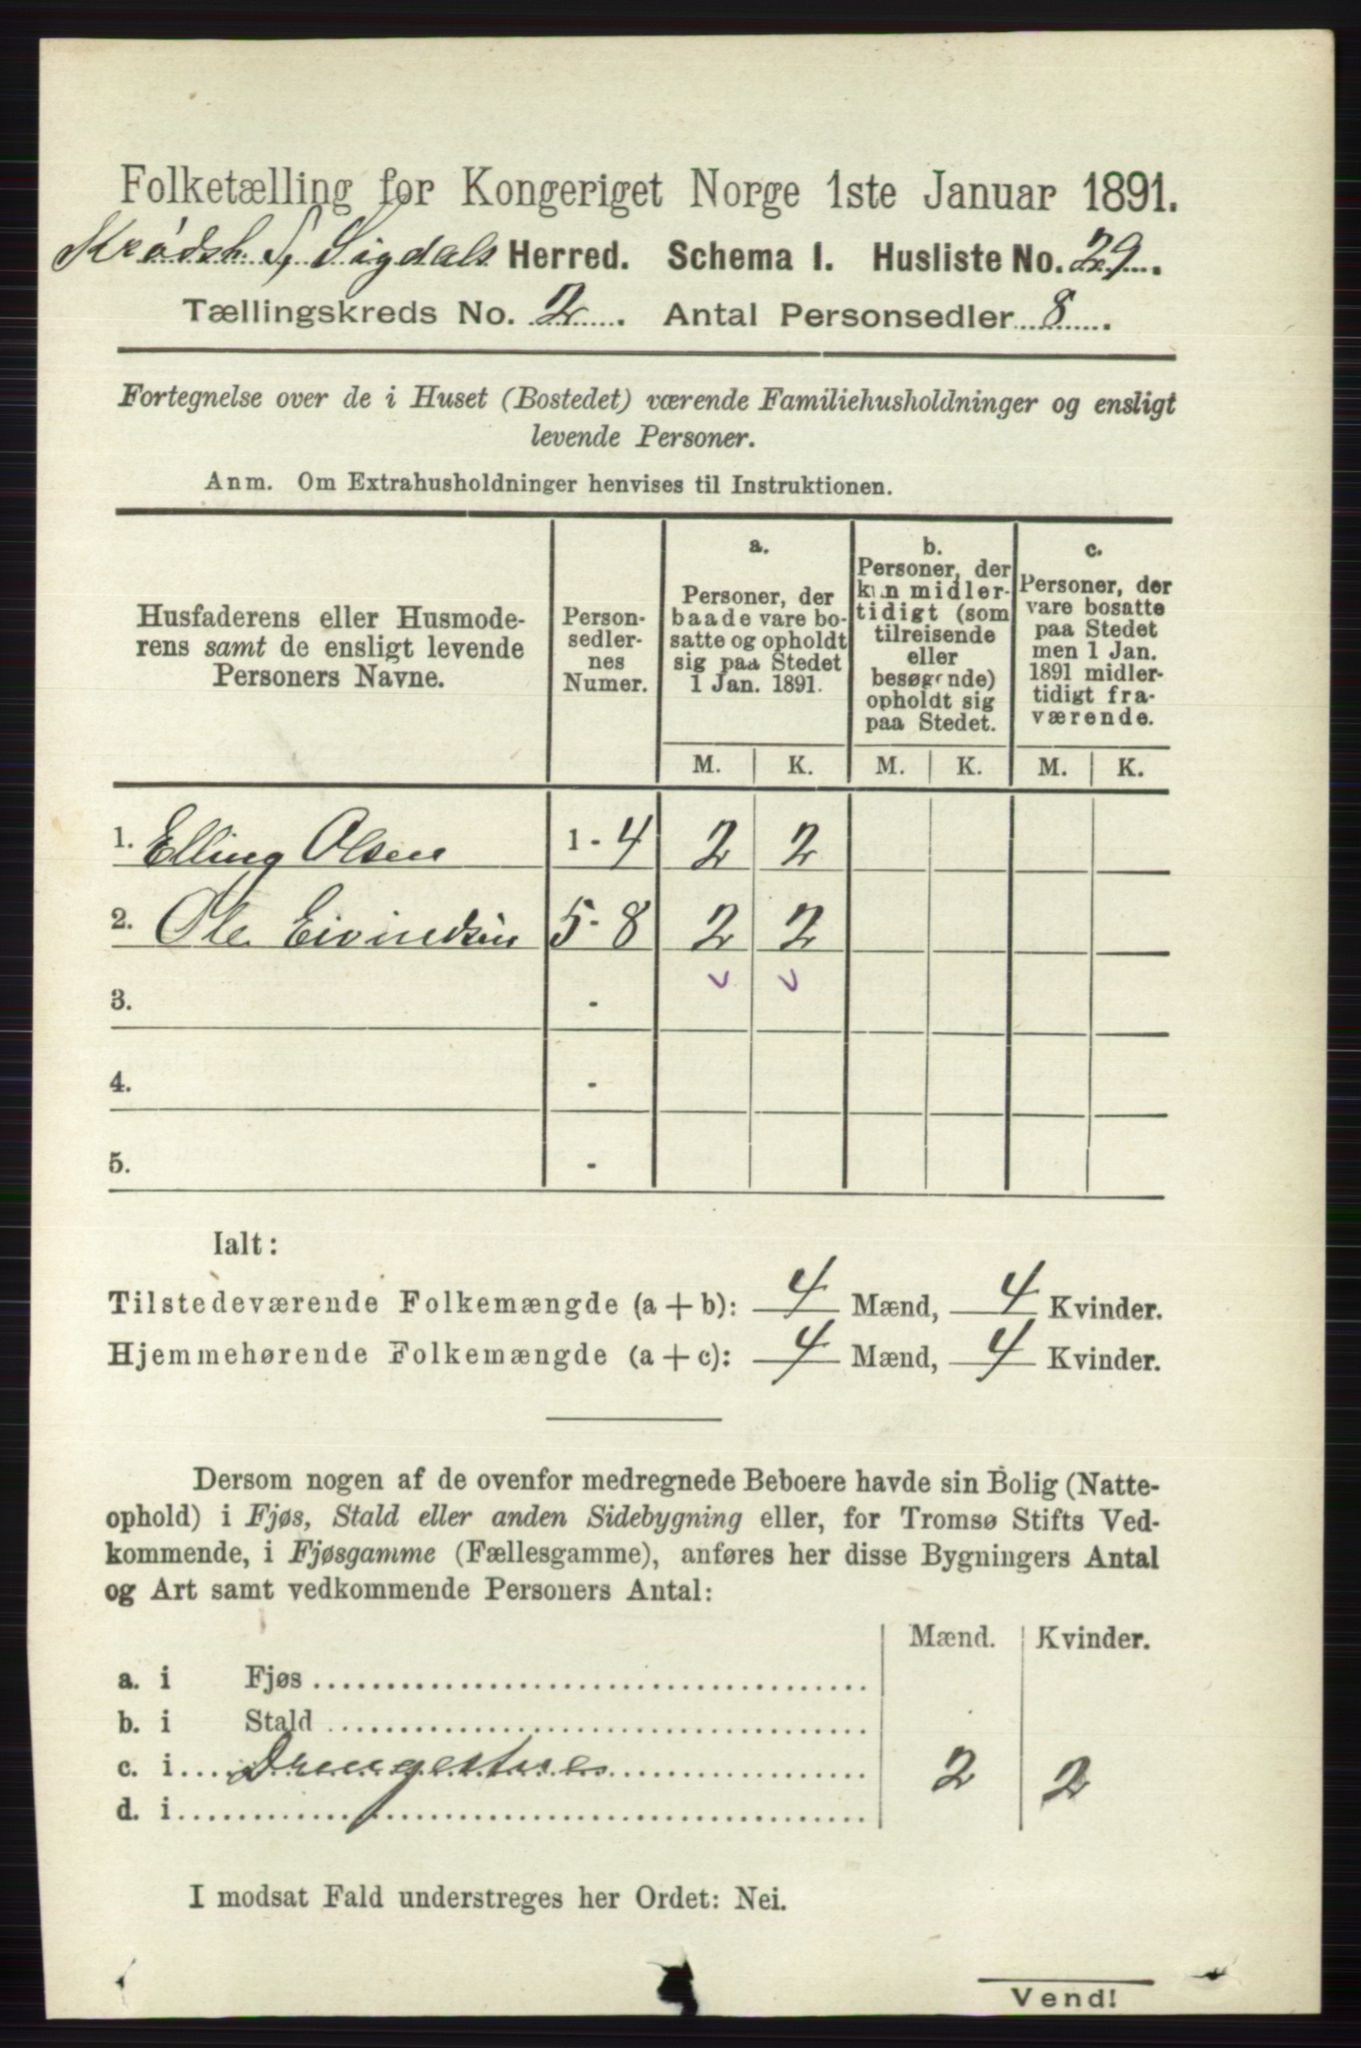 Folketælling for Kongeriget Norge 1ste Januar 1891.
Krødsh. S, Sigdals Herred. Schema I. Husliste No. 29.
Tællingskreds No. 2. Antal Personsedler 8.
Fortegnelse over de i Huset (Bostedet) værende Familiehusholdninger og ensligt
levende Personer.
Anm. Om Extrahusholdninger henvises til Instruktionen.
Husfaderens eller Husmode-
rens samt de ensligt levende
Personers Navne.
Person-
sedler-
nes
Numer.
a.
Personer, der
baade vare bo-
satte og opholdt
sig paa Stedet
1 Jan. 1891.
b.
Personer, der
kun midler-
tidigt (som
tilreisende
eller
besøgende)
opholdt sig
paa Stedet.
c.
Personer, der
vare bosatte
paa Stedet
men 1 Jan.
1891 midler-
tidigt fra-
værende.
M. K. M. K. M. K.
1. Elling Olsen 1 - 4 2 2
2. Ole Eivindsen 5 - 8 2 2
3. -
4. -
5. -
Ialt:
Tilstedeværende Folkemængde (a + b): 4 Mænd, 4 Kvinder.
Hjemmehørende Folkemængde (a + c): 4 Mænd, 4 Kvinder.
Dersom nogen af de ovenfor medregnede Beboere havde sin Bolig (Natte-
ophold) i Fjøs, Stald eller anden Sidebygning eller, for Tromsø Stifts Ved-
kommende, i Fjøsgamme (Fællesgamme), anføres her disse Bygningers Antal
og Art samt vedkommende Personers Antal:
Mænd. Kvinder.
a. i Fjøs
b. i Stald
c. i 2 2
d. i
I modsat Fald understreges her Ordet: Nei.
Vend!